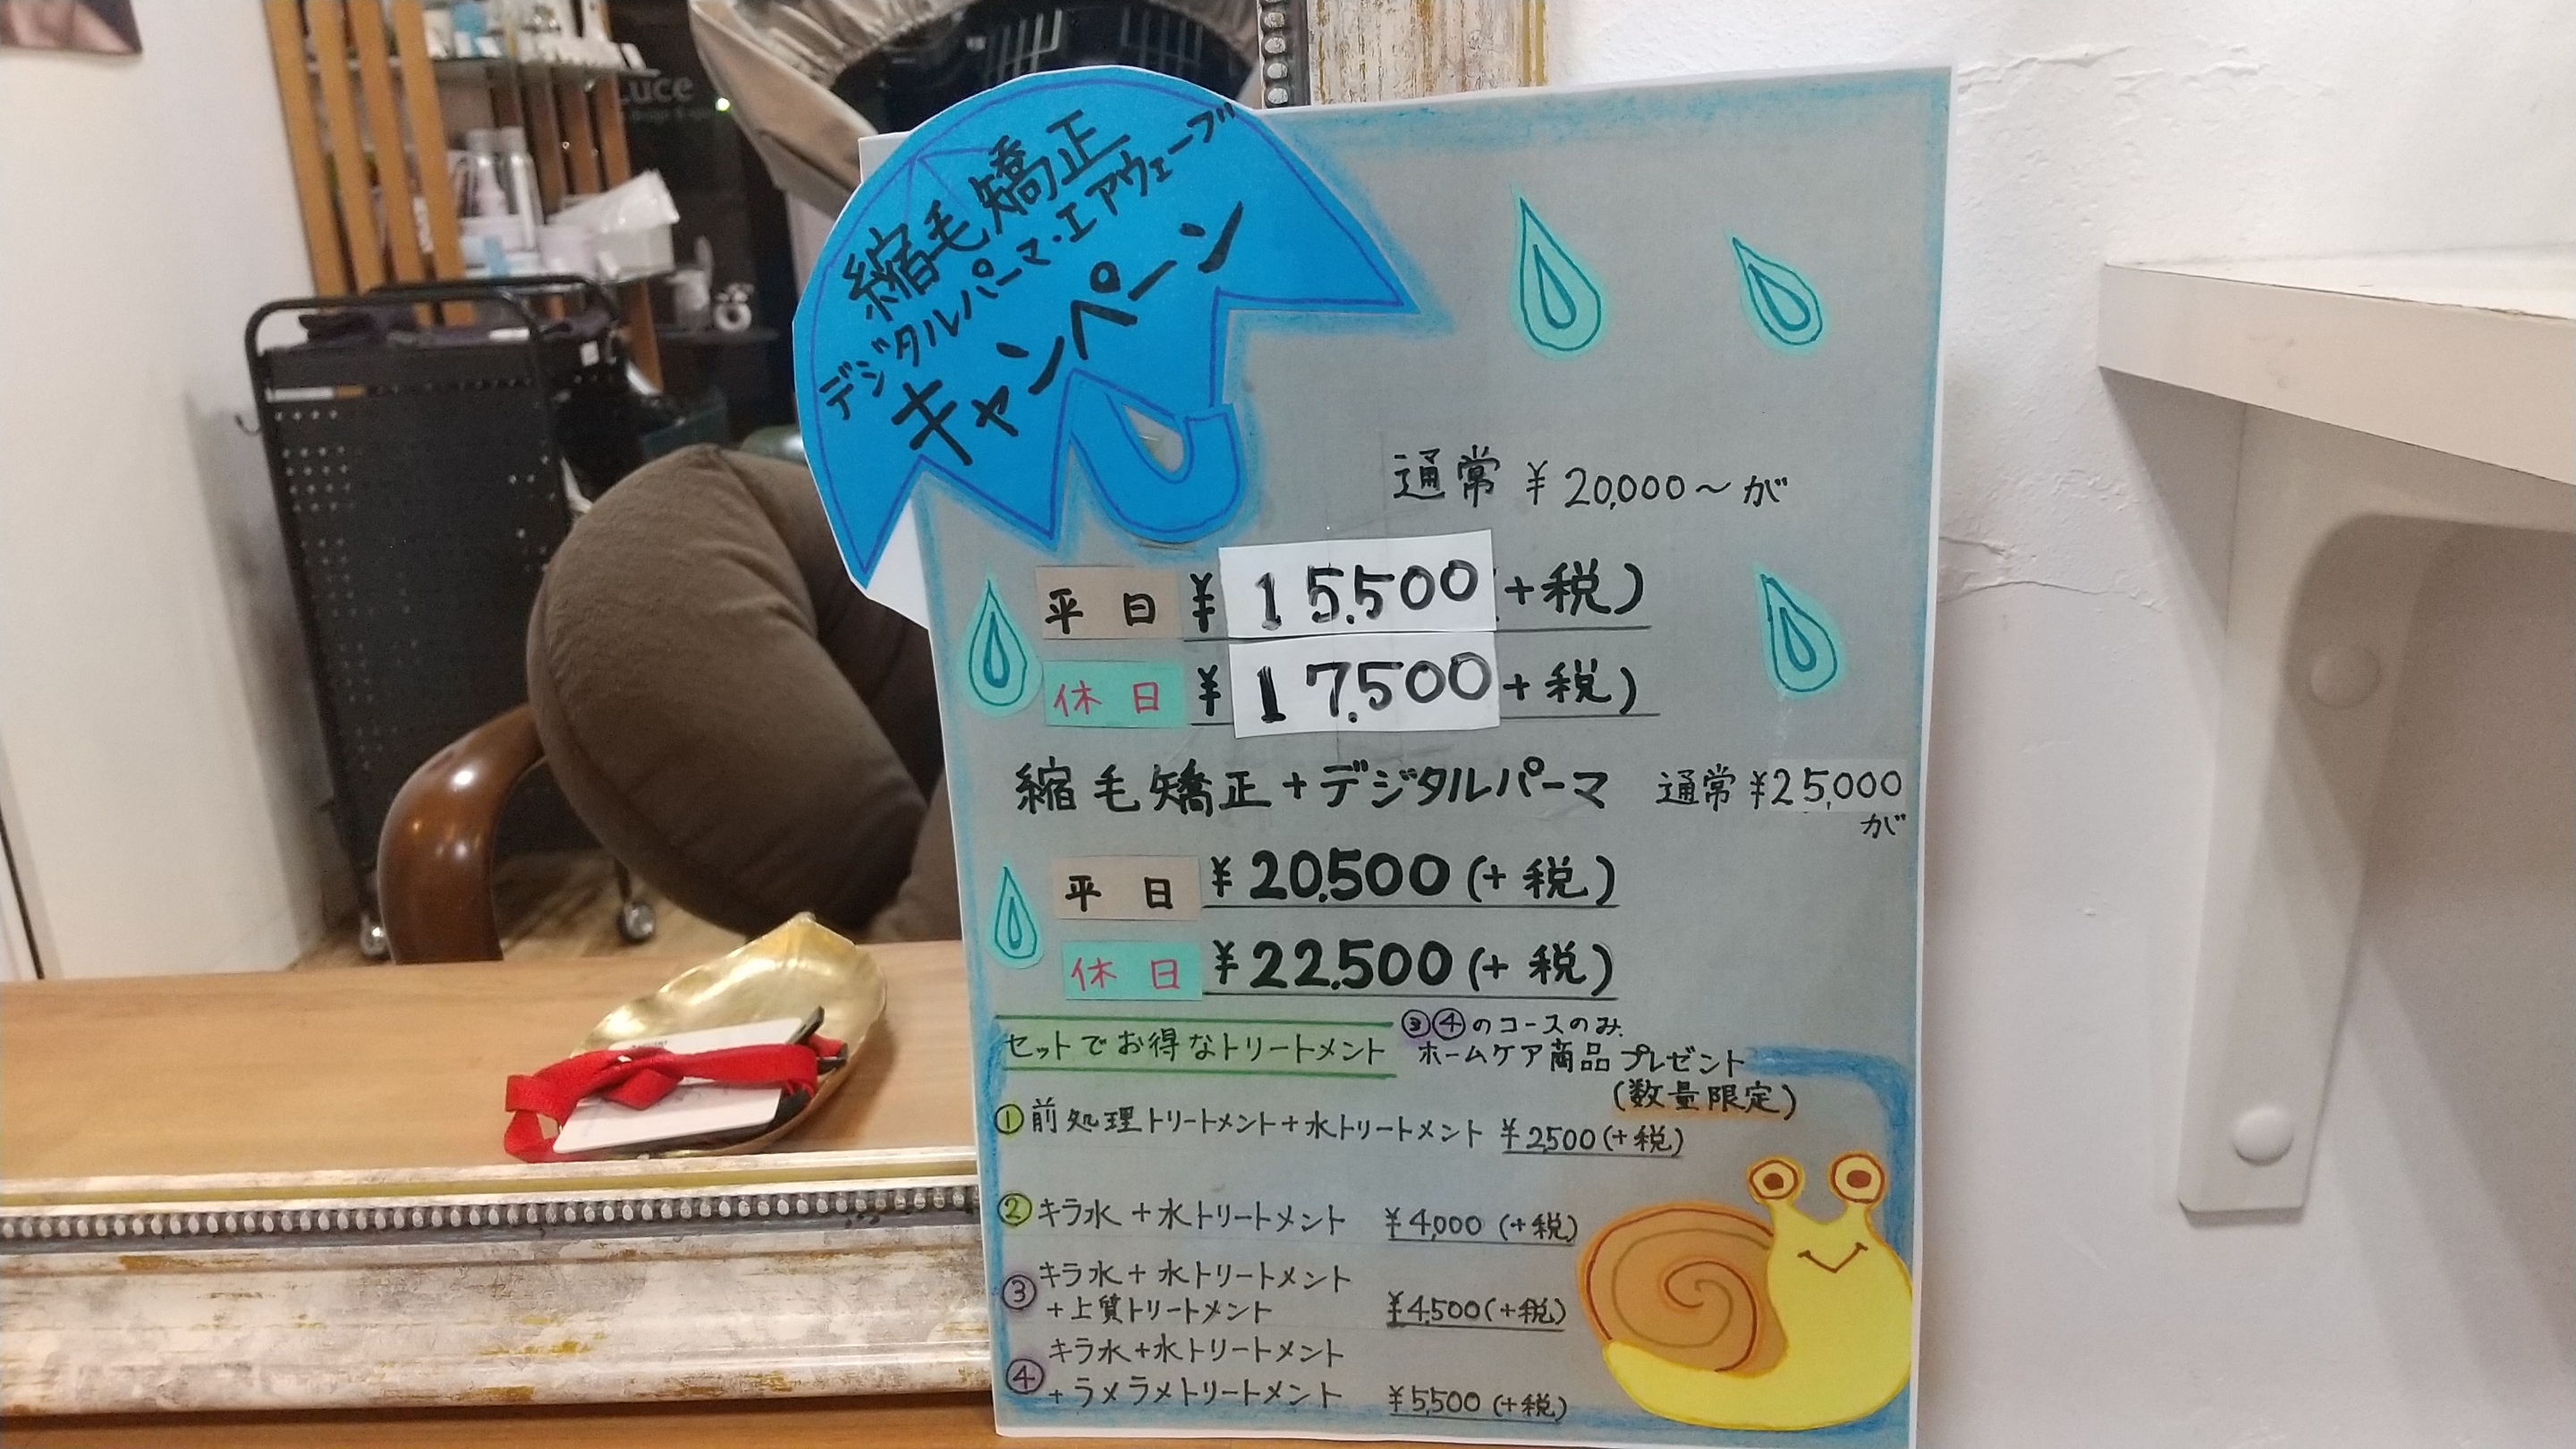 luce
縮毛矯正
デジタルパーマ・エアウェーブ
キャンペーン
通常 ¥20,000～が
平日 ¥15,500(+税)
休日 ¥17,500+税)
縮毛矯正+デジタルパーマ 通常¥25,000
が
平日 ¥20,500(+税)
休日 ¥22,500(+税)
セットでお得なトリートメント
③④のコースのみ
ホームケア商品プレゼント
(数量限定)
①前処理トリートメント+水トリートメント ¥2,500(+税)
②キラ水+水トリートメント ¥4,000(+税)
③キラ水+水トリートメント
+上質トリートメント ¥4,500(+税)
④キラ水+水トリートメント
+ラメラメトリートメント ¥5,500(+税)